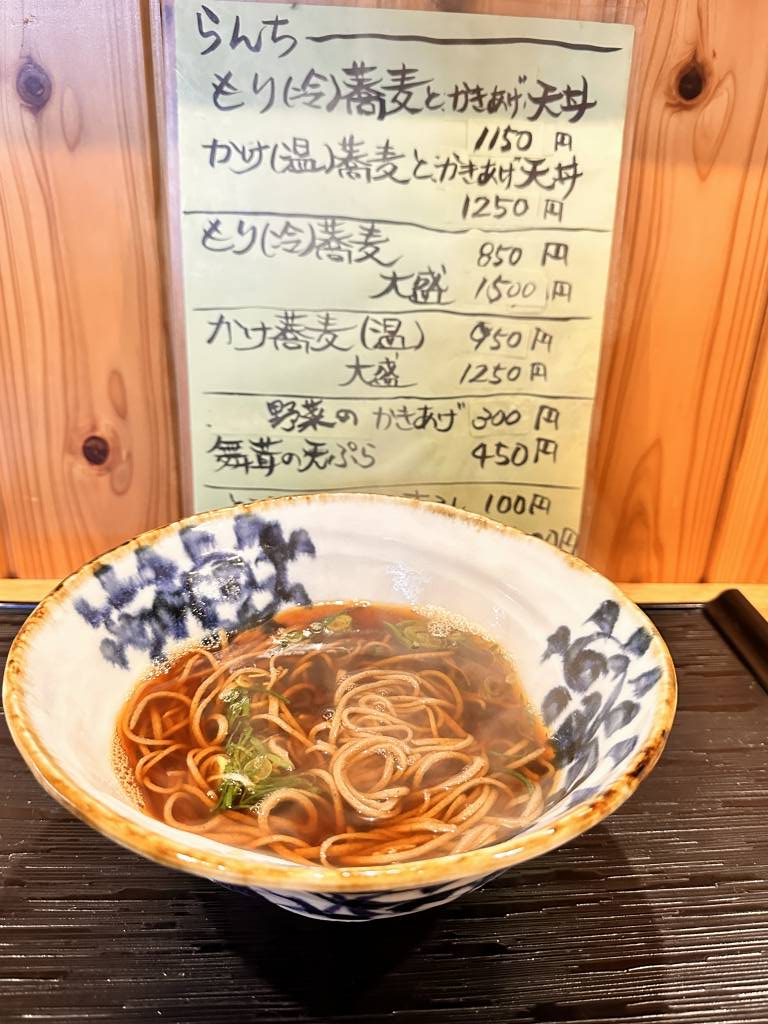 らんち
もり(冷)蕎麦とかきあげ天丼
1150円
かけ(温)蕎麦とかきあげ天丼
1250円
もり(冷)蕎麦 850円
大盛 1500円
かけ蕎麦(温) 950円
大盛 1250円
野菜のかきあげ 300円
舞茸の天ぷら 450円
100円